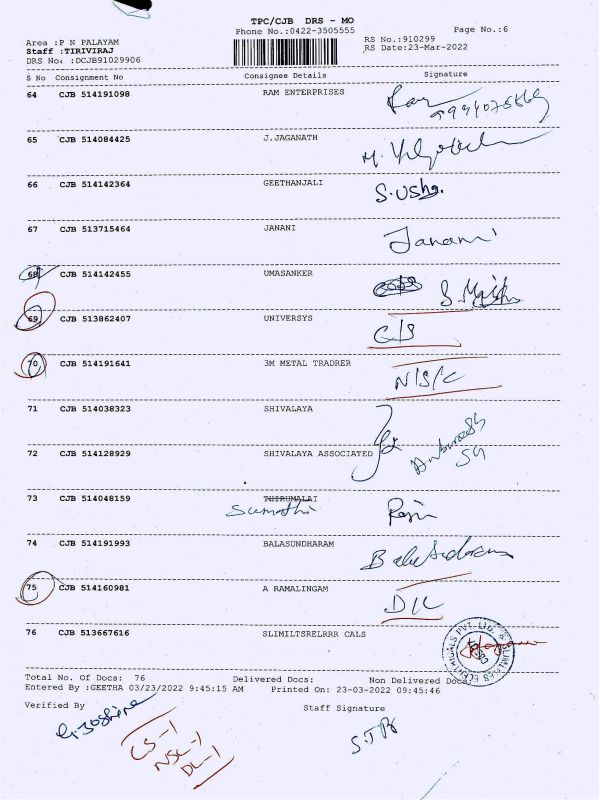 TPC/CJB DRS - MO
Phone No.:0422-3505555
Page No.:6
Area :P N PALAYAM
RS No.:910299
Staff :TIRIVIRAJ
RS Date:23-Mar-2022
DRS No: :DCJB91029906
S No Consignment No Consignee Details Signature
64 CJB 514191098 RAM ENTERPRISES
65 CJB 514084425 J.JAGANATH
66 CJB 514142364 GEETHANJALI S.Usha.
67 CJB 513715464 JANANI Janani
68 CJB 514142455 UMASANKER
69 CJB 513862407 UNIVERSYS C/S
70 CJB 514191641 3M METAL TRADRER N/S/C
71 CJB 514038323 SHIVALAYA
72 CJB 514128929 SHIVALAYA ASSOCIATED
73 CJB 514048159 THIRUMALAI
Sumathi
74 CJB 514191993 BALASUNDHARAM
75 CJB 514160981 A RAMALINGAM D/L
76 CJB 513667616 SLIMILTSRELRRR CALS
Total No. Of Docs: 76 Delivered Docs: Non Delivered Docs
Entered By :GEETHA 03/23/2022 9:45:15 AM Printed On: 23-03-2022 09:45:46
Verified By Staff Signature
CS-1
NSC-1
DL-1